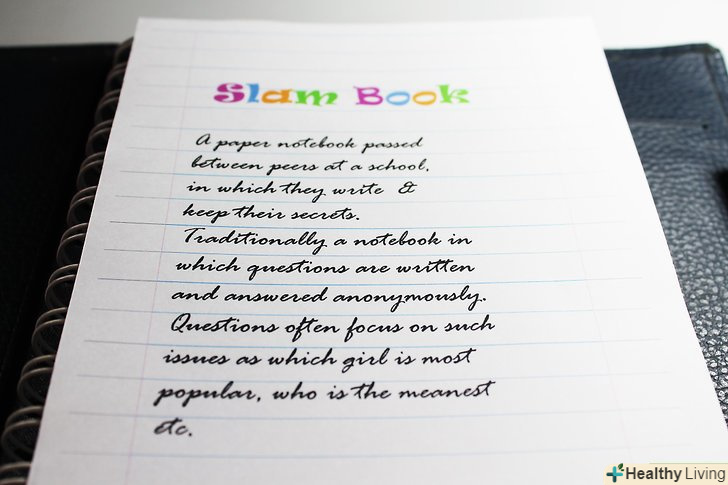 Slam Book
A paper notebook passed
between peers at a school,
in which they write &
keep their secrets.
Traditionally a notebook in
which questions are written
and answered anonymously.
Questions often focus on such
issues as which girl is most
popular, who is the meanest
etc.
Healthy Living